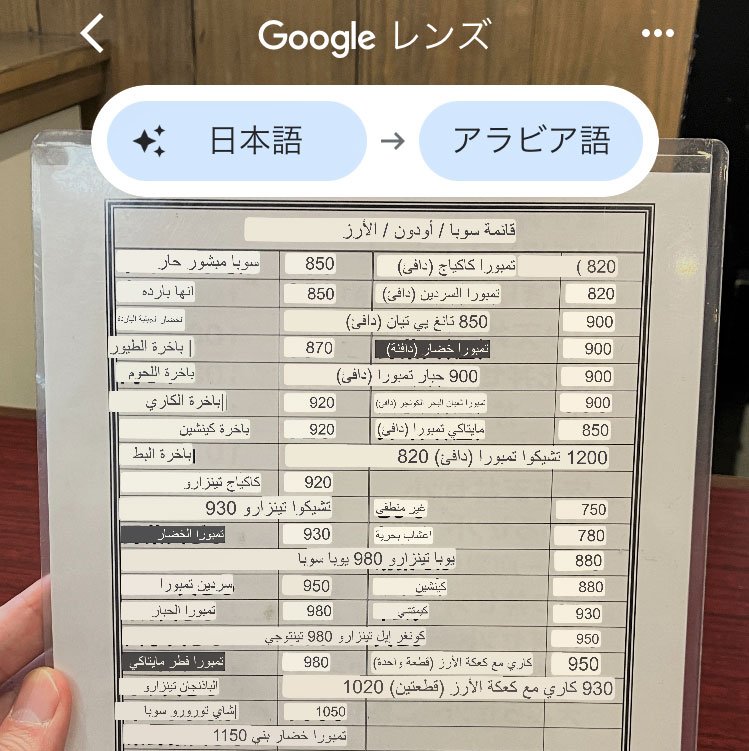 Google レンズ
日本語 → アラビア語
قائمة سوبا / أودون / الأرز
سوبا مبشور حار 850 تمبورا كاكياج (دافئ) ( 820
انها بارده 850 تمبورا السردين (دافئ) 820
850 تانغ يي تيان (دافئ) 900
باخرة الطيور 870 تمبورا خضار (دافئة) 900
باخرة اللحوم 900 حبار تمبورا (دافئ) 900
باخرة الكاري 920 تمبورا ثعبان البحر الكونجر (دافئ) 900
باخرة كيتشين 920 مايتاكي تمبورا (دافئ) 850
باخرة البط 1200 تشيكوا تمبورا (دافئ) 820
كاكياج تينزارو 920
تشيكوا تينزارو 930 غير منطقي 750
تمبورا الخضار 930 اعشاب بحرية 780
يوبا تينزارو 980 يوبا سوبا 880
سردين تمبورا 950 كيتشين 880
تمبورا الحبار 980 كيمتشي 930
كونغر إيل تينزارو 980 تينتوجي 950
تمبورا فطر مايتاكي 980 كاري مع كعكة الأرز (قطعة واحدة) 950
الباذنجان تينزارو 930 كاري مع كعكة الأرز (قطعتين) 1020
شاي تورورو سوبا 1050
تمبورا خضار بني 1150